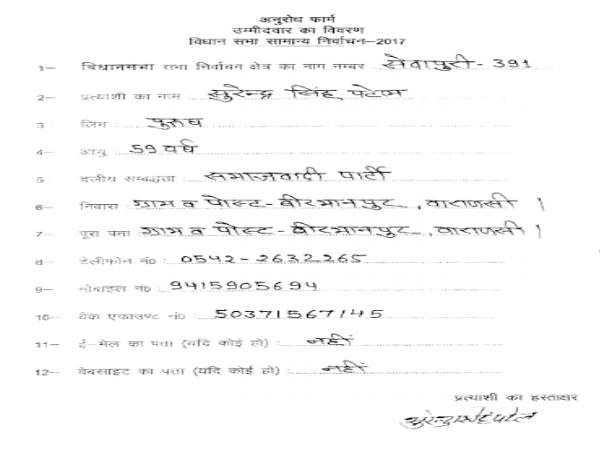 अनुरोध फार्म
उम्मीदवार का विवरण
विधान सभा सामान्य निर्वाचन–2017
1– विधानसभा सभा निर्वाचन क्षेत्र का नाम नम्बर सेवापुरी - 391
2– प्रत्याशी का नाम सुरेन्द्र सिंह पटेल
3 लिंग पुरुष
4 आयु 59 वर्ष
5 दलीय सम्बद्धता : समाजवादी पार्टी
6– निवास ग्राम व पोस्ट - बीरभानपुर, वाराणसी ।
7– पूरा पता ग्राम व पोस्ट - बीरभानपुर, वाराणसी ।
8 टेलीफोन नं0 : 0542-2632265
9– मोबाइल नं0 9415905694
10– बैंक एकाउण्ट नं0 50371567145
11– ई-मेल का पता (यदि कोई हो) : नहीं
12– वेबसाइट का पता (यदि कोई हो) : नहीं
प्रत्याशी का हस्ताक्षर
सुरेन्द्र सिंह पटेल